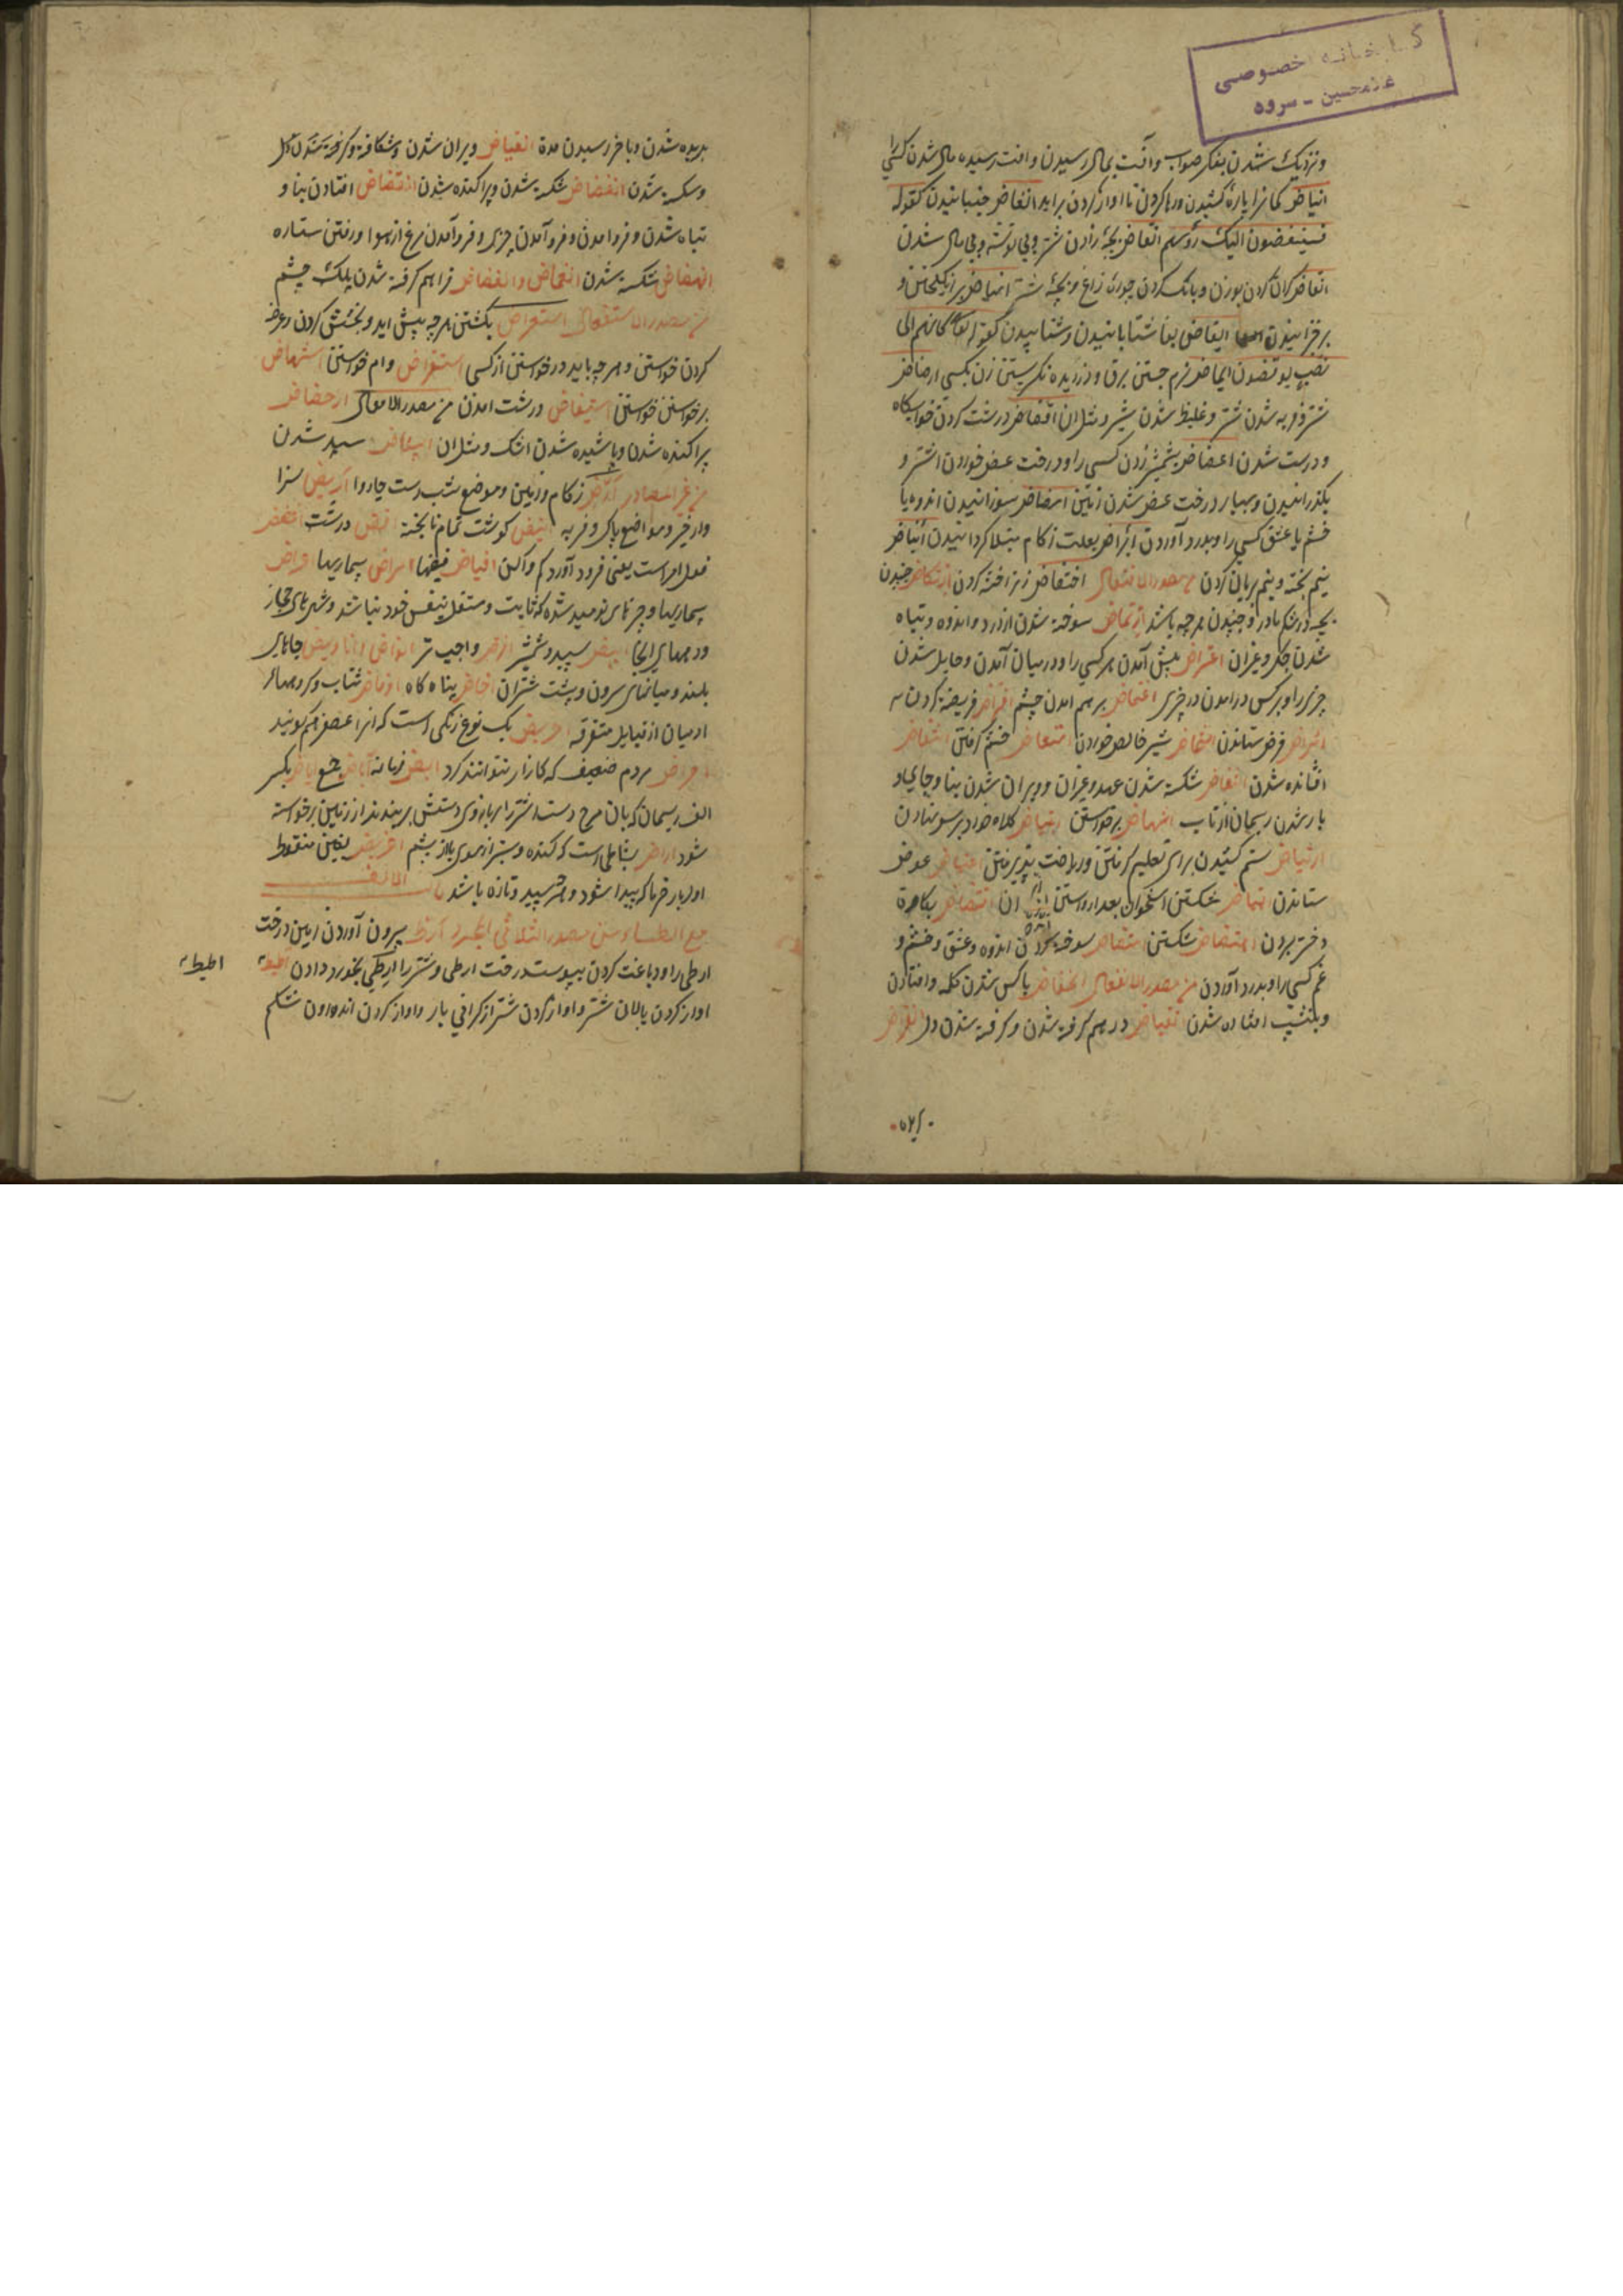 کتابخانه خصوصی
غلامحسین - سروه
ونزدیک شدن بفکر صواب وآفت بمال رسیدن وآفت رسیده مال شدن کسی را
انباض کمانرا پاره کشیدن ورها کردن تا اواز کردن براید انغاض جنبانیدن کقوله
فسینغضون الیک رؤسهم انفاض بچه زادن شتر وبی توشه وبی مال شدن
انقاض کران کردن بوزن وبانک کردن چوزه زاغ وبچه شتر انهاض برانکیختن و
برخزانیدن ایفاض بفا شتابانیدن وشتابیدن کقوله تعا کانهم الی
نصب یوفضون ایماض نرم جستن برق ودزدیده نکریستن زن بکسی ارضاض
شتر فربه شدن شتر وغلیظ شدن شیر ومثل ان اقضاض درشت کردن خوابکاه
ودرست شدن اعضاض بشمشیر زدن کسی را ودرخت عض خوردن اشتر و
بکذرانیدن وبسیار درخت عض شدن زمین امضاض سوزانیدن اندوه یا
خشم یا عشق کسی را وبدرد آوردن ایراض بعلت زکام مبتلا کردانیدن انیاض
نیم پخته ونیم بریان کردن من مصدر الافتعال اختفاض زن اخته کردن ارتکاض جنبیدن
بچه در شکم مادر وجنبیدن هرچه باشد ارتماض سوخته شدن از درد واندوه وتباه
شدن جکر وغیران اعتراض پیش آمدن هرکسی را ودرمیان آمدن وحایل شدن
چیزی را وبرکس درامدن در چیزی اغتماض برهم امدن چشم افتراض فریضه کردن
اقتراض قرض ستاندن امتخاض شیر خالص خوردن امتعاض خشم کرفتن انتفاض
افشانده شدن انتقاض شکسته شدن عهد وغیران وویران شدن بنا وجای او
باز شدن ریسمان از تاب انتهاض برخواستن ابتیاض کلاه خود بر سر نهادن
ارتیاض ستم کشیدن برای تعلیم کرفتن وریاضت پذیرفتن اعتیاض عوض
ستاندن اهتیاض شکستن استخوان بعد از رستن ان اقتضاض بکارة
دختر بردن اهتضاض شکستن امتضاض سوخته کردن اندوه وعشق وخشم و
غم کسی را وبدرد آوردن من مصدر الانفعال انخفاض پاکس شدن کله وافتادن
وبنشیب افتاده شدن انقباض درهم کرفته شدن وکرفته شدن دل انقراض
بریده شدن وباخر رسیدن مدة انقیاض ویران شدن وشکافته
وشکسته شدن انفضاض شکسته شدن وپراکنده شدن انقضاض افتادن بنا و
تباه شدن وفرو امدن وفرو آمدن چیزی وفروآمدن مرغ از هوا ورفتن ستاره
انهضاض شکسته شدن انغماض وانغضاض فراهم کرفته شدن پلک چشم
من مصدر الاستفعال استعراض بکشتن هرچه پیش اید وبخشش کردن وعرض
کردن خواستن وهرچه باید درخواستن از کسی استقراض وام خواستن استنهاض
برخواستن خواستن استیفاض درشت امدن من مصدر الافعلال ارفضاض
پراکنده شدن وپاشیده شدن اشک ومثل ان ابیضاض سپید شدن
من غیر المصادر ارض زکام وزمین وموضع شب دست چاروا اریض سزا
وار خیر ومواضع پاک وفربه انیض کوشت تمام ناپخته
فعل امر است یعنی فرود آورد کم واکن افیاض فیضها امراض بیماریها اعراض
بیماریها وچیزهای نومید شده که ثابت ومستقل بنفس خود نباشد وشهرهای حجاز
ودرهای انجا ابیض سپید وشمشیر افرض واجیب تر
بلند ومیانهای سرون وپشت شتران اباض پناه کاه اوفاض شتاب وکروهها از
ادمیان از قبایل متفرقه احریض یک نوع رنکی است که انرا عصفر هم کویند
احراض مردم ضعیف که کارزار نتوانند کرد ابض زمانه آباض جمع اباض بکسر
الف ریسمان که بان مرج دست شتر را ببازوی دستش بربندند از زمین برخواسته
شود اراض بساطی است که کنده وستبر از موی یا از پشم اغریض بغین منقوط
اول بار خرما که پیدا شود وهر سپید وتازه باشد باب الالف
مع الطاء من مصدر الثلاثی المجرد ارط بیرون آوردن زمین درخت
ارطی را ودباغت کردن بپوست درخت ارطی وشتر را ارطی بخورد دادن اطیط
اواز کردن پالان شتر واواز کردن شتر از کرانی بار واواز کردن اندرون شکم
اطیط